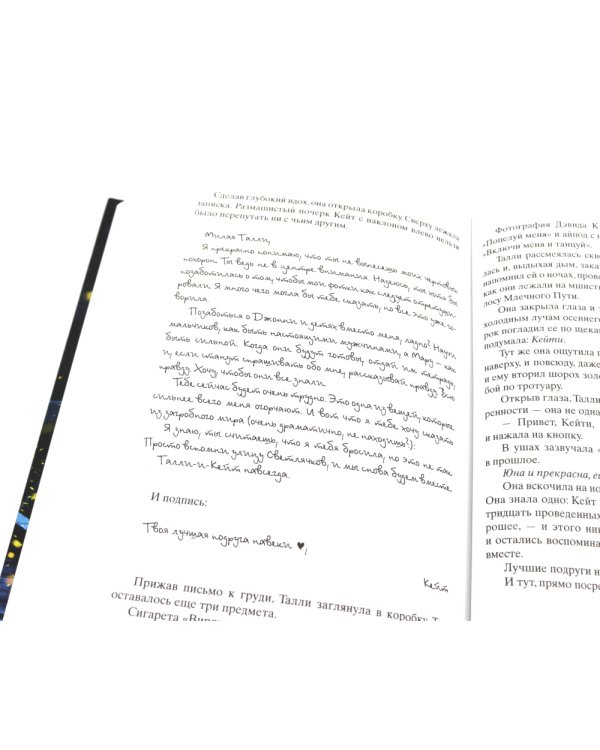 Сделав глубокий вдох, она открыла коробку. Сверху лежала
записка. Размашистый почерк Кейт с наклоном влево нельзя
было перепутать ни с чьим другим.
Милая Талли,
Я прекрасно понимаю, что ты не вынесешь моих чертовых
похорон. Ты ведь не в центре внимания. Надеюсь, ты хотя бы
позаботилась о том, чтобы мои фотки как следует отретуши-
ровали. Я много чего могла бы тебе сказать, но все это уже го-
ворила.
Позаботься о Джонни и детях вместо меня, ладно? Научи
мальчиков, как быть настоящими мужчинами, а Мару – как
быть сильной. Когда они будут готовы, отдай им тетрадь,
и если станут спрашивать обо мне, рассказывай правду. Всю
правду. Хочу, чтобы они все знали.
Тебе сейчас будет очень трудно. Это одна из вещей, которые
сильнее всего меня огорчают. И вот что я тебе хочу сказать
из загробного мира (очень драматично, не находишь?):
Я знаю, ты считаешь, что я тебя бросила, но это не так.
Просто вспомни улицу Светлячков, и мы снова будем вместе.
Талли-и-Кейт навсегда.
И подпись:
Твоя лучшая подруга навеки ♥,
Кейт
Прижав письмо к груди, Талли заглянула в коробку.
оставалось еще три предмета.
Сигарета
Фотография Дэвида К
«Поцелуй меня» и айпод с н
«Включи меня и танцуй».
Талли рассмеялась скво
лась и, выдыхая дым, зака
напомнил ей о ночах, прове
как они лежали на мшисто
лосу Млечного Пути.
Она закрыла глаза и з
холодным лучам осеннего
рок погладил ее по щекам
подумала: Кейти.
Тут же она ощутила п
наверху, и повсюду, даже
и ему вторил шорох золо
бой по тротуару.
Открыв глаза, Талли
ренности — она не одна
— Привет, Кейти,
и нажала на кнопку.
В ушах зазвучала «
в прошлое.
Юна и прекрасна, е
Она вскочила на но
Она знала одно: Кейт
тридцать проведенных
рошее, — и этого ник
и остались воспомина
вместе.
Лучшие подруги н
И тут, прямо посре